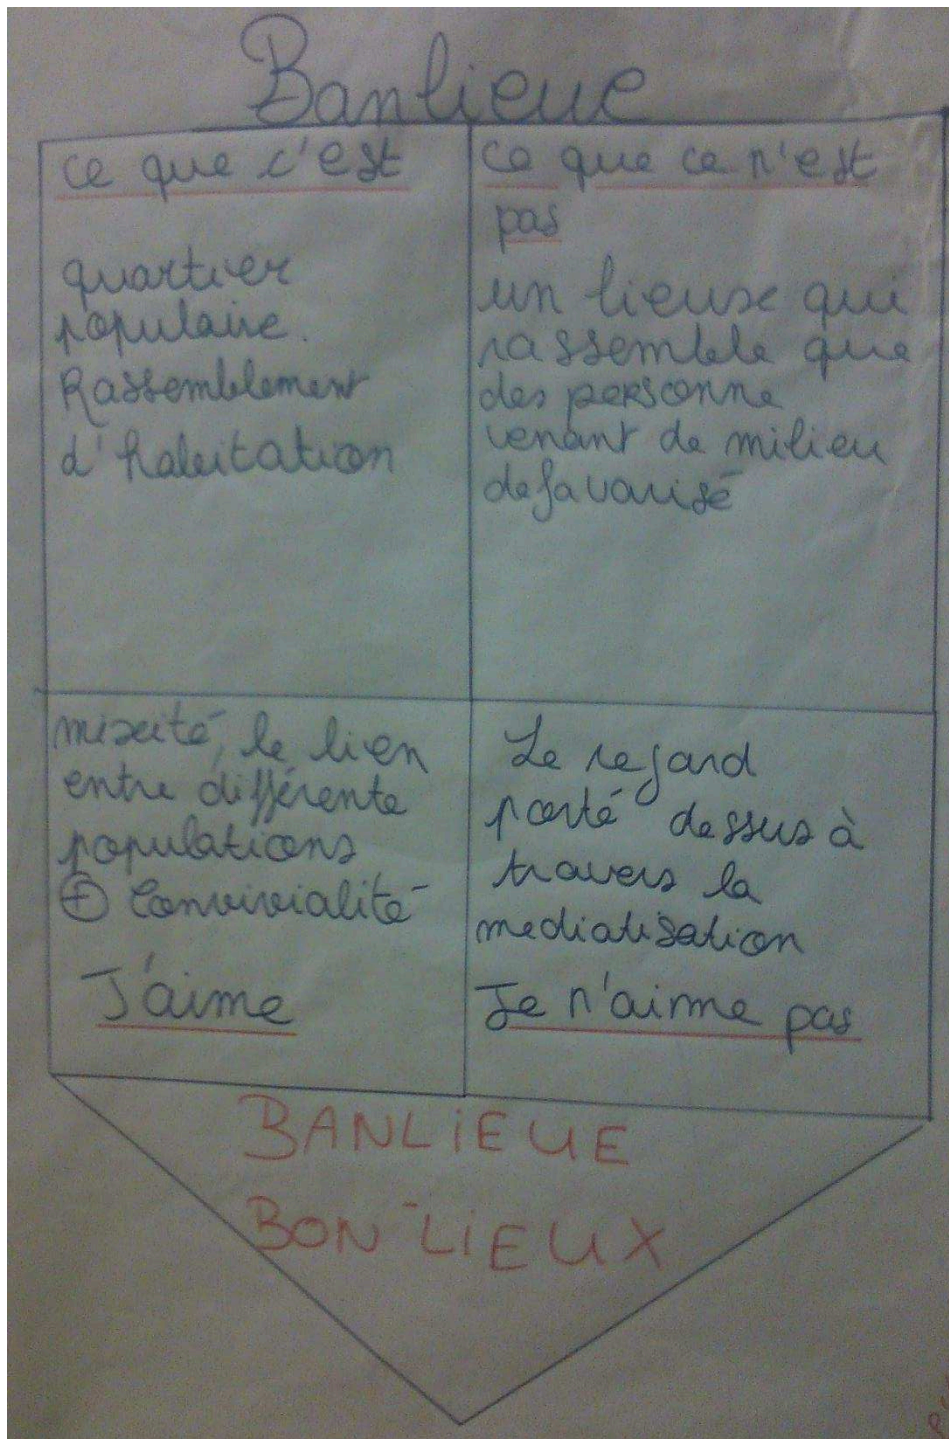 Banlieue
ce que c'est
quartier
populaire.
Rassemblement
d'habitation
ce que ce n'est
pas
un lieuxe qui
rassemble que
des personne
venant de milieu
defavorisé
mixité, le lien
entre différente
populations
+ convivialité
J'aime
Le regard
porté dessus à
travers la
mediatisation
Je n'aime pas
BANLIEUE
BON-LIEUX